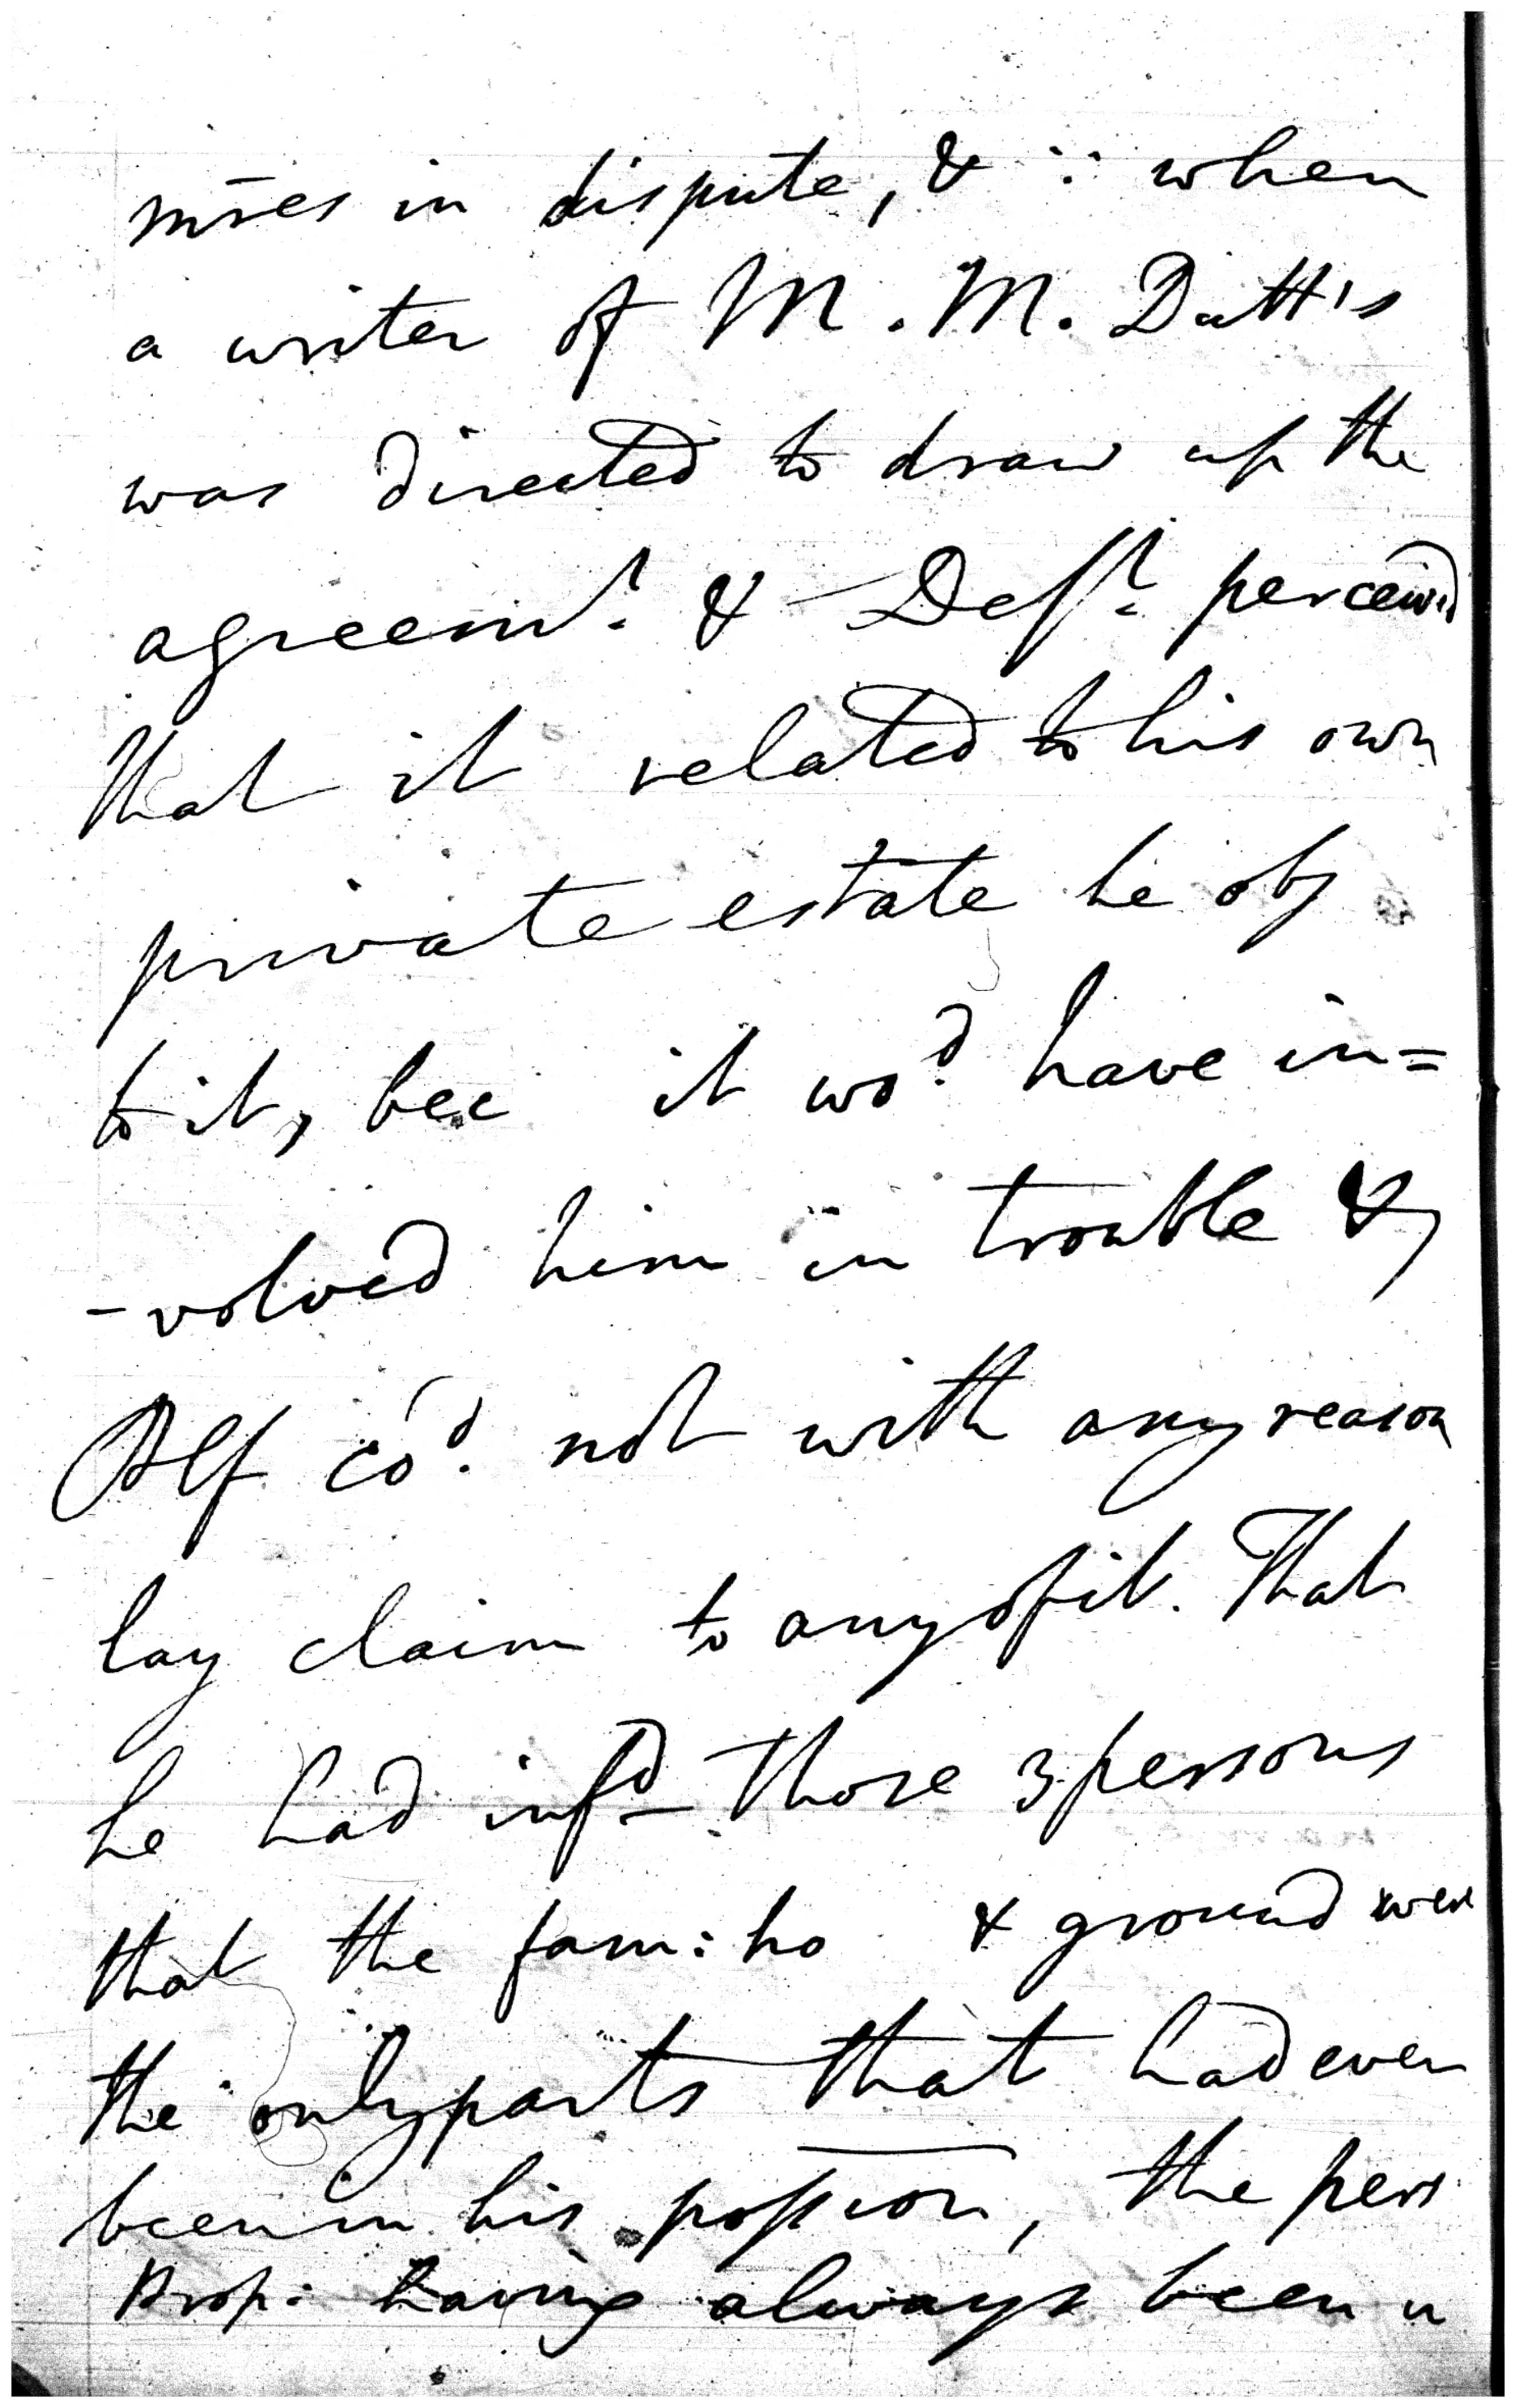 mr̄es in dispute, & ∵ when
a writer of M. M. Datt's
was directed to draw up the
agreemt. & Deft. perceivd
that it related to his own
private estate he obj
to it, bec it wod. have in=
-volved him in trouble &
Plf cod. not with any reason
lay claim to any of it. That
he had infd. those 3 persons
that the fam: ho & ground were
the only parts that had ever
been in his possion, the pers
Prop: having always been